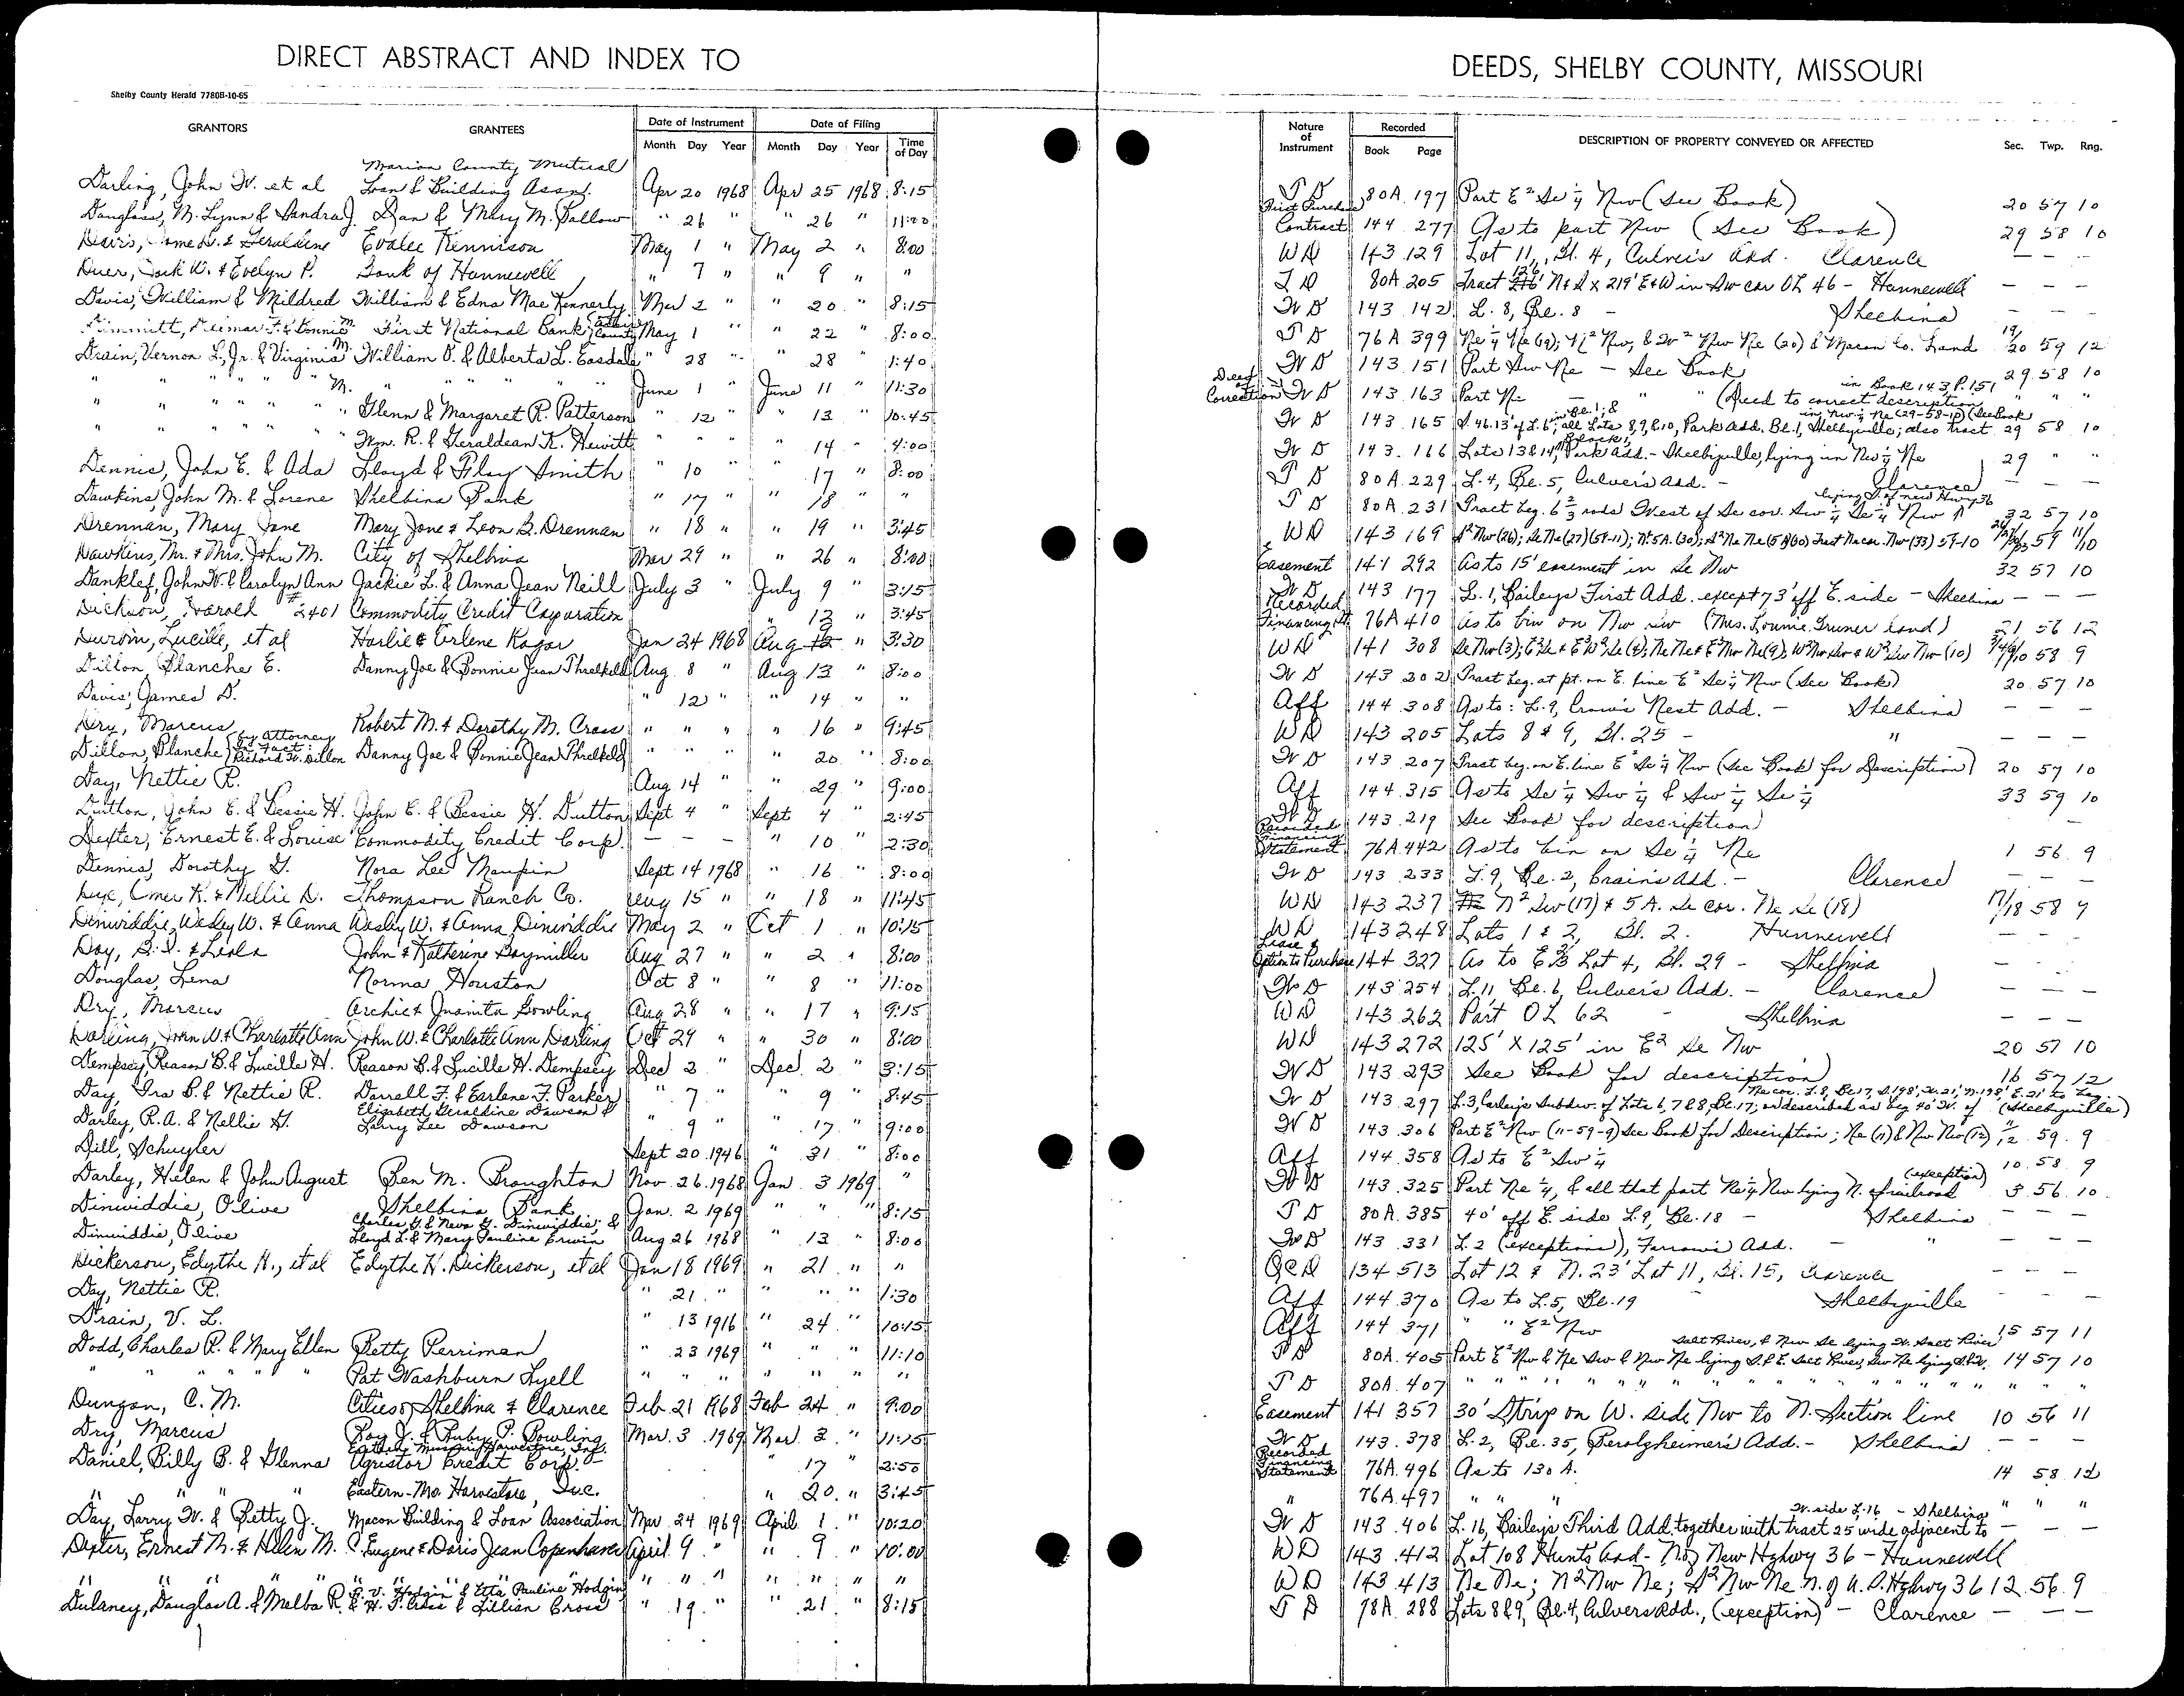 DIRECT ABSTRACT AND INDEX TO
Shelby County Herald 7780B-10-65
GRANTORS GRANTEES Date of Instrument Date of Filing
Month Day Year Month Day Year Time of Day
Marion County Mutual
Darling, John W. et al Loan & Building Assn. Apr 20 1968 Apr 25 1968 8:15
Douglass, M. Lynn & Sandra J. Dan & Mary M. Ballow " 26 " " 26 " 11:20
Davis, & Geraldine Evalee Kennison May 1 " May 2 " 8:00
Duer, Jack W. & Evelyn P. Bank of Hunnewell " 7 " " 9 " "
Davis, William & Mildred William & Edna Mae Kennerly Mar 2 " " 20 " 8:15
Dimmitt, & Bonnie M. First National Bank May 1 " " 22 " 8:00
Drain, Vernon L., Jr. & Virginia M. William O. & Alberta L. Easdale " 28 " " 28 " 1:40
" " " " " M. " " " " " June 1 " June 11 " 11:30
" " " " " " Glenn & Margaret R. Patterson " 12 " " 13 " 10:45
" " " " " " Wm. R. & Geraldean K. Hewitt " " " " 14 " 4:00
Dennis, John E. & Ada Lloyd & Flay Smith " 10 " " 17 " 8:00
Dawkins, John M. & Lorene Shelbina Bank " 17 " " 18 " "
Drennan, Mary Jane Mary Jane & Leon B. Drennan " 18 " " 19 " 3:45
Hawkins, Mr. & Mrs. John M. City of Shelbina Mar 29 " " 26 " 8:00
Danklef, John W. & Carolyn Ann Jackie L. & Anna Jean Neill July 3 " July 9 " 3:15
Dickson, Harold #2401 Commodity Credit Corporation " 12 " 3:45
Durbin, Lucille, et al Harlie & Erlene Kagar Jan 24 1968 Aug 12 " 3:30
Dillon, Blanche E. Danny Joe & Bonnie Jean Threlkeld Aug. 8 " Aug 13 " 8:00
Davis, James D. " 12 " " 14 " "
Dry, Marcus Robert M. & Dorothy M. Cross " " " " 16 " 9:45
Dillon, Blanche (by Attorney in fact: Richard W. Dillon Danny Joe & Bonnie Jean Threlkeld " " " " 20 " 8:00
Day, Nettie R. Aug 14 " " 29 " 9:00
Dutton, John E. & Bessie H. John E. & Bessie H. Dutton Sept 4 " Sept 4 " 2:45
Dexter, Ernest E. & Louise Commodity Credit Corp. — — — " 10 " 2:30
Dennis, Dorothy G. Nora Lee Maupin Sept 14 1968 " 16 " 8:00
Dye, Omer K. & Nellie D. Thompson Ranch Co. Aug 15 " " 18 " 11:45
Dinwiddie, Wesley W. & Anna Wesley W. & Anna Dinwiddie May 2 " Oct 1 " 10:15
Day, & Leola John & Katherine Baymiller Aug 27 " " 2 " 8:00
Douglas, Lena Norma Houston Oct 8 " " 8 " 11:00
Dry, Marcus Archie & Juanita Gowling Aug 28 " " 17 " 9:15
Darling, John W. & Charlotte Ann John W. & Charlotte Ann Darling Oct 29 " " 30 " 8:00
Dempsey, Reason B. & Lucille H. Reason B. & Lucille H. Dempsey Dec 2 " Dec. 2 " 3:15
Day, Ira B. & Nettie R. Darrell F. & Earlene F. Parker " 7 " " 9 " 8:45
Darley, R.A. & Nellie H. Elizabeth Geraldine Dawson & Larry Lee Dawson " 9 " " 17 " 9:00
Dill, Schuyler Sept 20 1946 " 31 " 8:00
Darley, Helen & John August Ben M. Broughton Nov. 26 1968 Jan. 3 1969 "
Dinwiddie, Olive Shelbina Bank Jan. 2 1969 " " " 8:15
Dinwiddie, Olive Charles G. & Neva G. Dinwiddie; & Lloyd L. & Mary Pauline Erwin Aug 26 1968 " 13 " 8:00
Dickerson, Edythe H., et al Edythe H. Dickerson, et al Jan 18 1969 " 21 " "
Day, Nettie R. " 21 " " " " 1:30
Drain, V. L. " 13 1916 " 24 " 10:15
Dodd, Charles R. & Mary Ellen Betty Perriman " 23 1969 " " " 11:10
" " " " " Pat Washburn Lyell " " " " " " "
Dungan, C. M. Cities of Shelbina & Clarence Feb. 21 1968 Feb 24 " 9:00
Dry, Marcus Roy J. & Ruby P. Bowling Mar. 3 1969 Mar. 3 " 11:15
Daniel, Billy B. & Glenna Agristor Credit Corp. " 17 2:50
" " " Eastern-Mo. Harvestore, Inc. " 20 " 3:45
Day, Larry W. & Betty J. Macon Building & Loan Association Mar. 24 1969 April 1 " 10:20
Dexter, Ernest M. & Helen M. C. Eugene & Doris Jean Copenhaver April 9 " " 9 " 10:00
" " " " " " " " " " " " " " "
Dulaney, Douglas A. & Melba R. R. V. Hodgin & Etta Pauline Hodgin & H. F. Cross & Lillian Cross " 19 " " 21 " 8:15
DEEDS, SHELBY COUNTY, MISSOURI
Nature of Instrument Recorded DESCRIPTION OF PROPERTY CONVEYED OR AFFECTED Sec. Twp. Rng.
Book Page
T D 80A 197 Part E² Se ¼ Nw (See Book) 20 57 10
First Purchase Contract 144 277 As to part Nw (See Book) 29 58 10
WD 143 129 Lot 11, Bl. 4, Culver's Add. Clarence — — —
T D 80A 205 Tract 126' N&S x 219' E&W in Sw cor OL 46 - Hunnewell — — —
W D 143 142 L. 8, Bl. 8 - Shelbina — — —
T D 76A 399 Ne ¼ Ne (19); N² Nw, & W² Nw Ne (20) & Macon Co. Land 19/20 59 12
W D 143 151 Part Sw Ne - See Book 29 58 10
Deed of Correction W D 143 163 Part Ne " " (Deed to correct description in Book 143 P. 151
W D 143 165 S. 46.13' of L. 6 in Bl. 1; & all Lots 8, 9, & 10, Park Add. Bl. 1, Shelbyville; also tract in Nw ¼ Ne (29-58-10) (See Book 29 58 10
W D 143 166 Lots 13 & 14, Block 1, Park Add. - Shelbyville, lying in Nw ¼ Ne 29 " "
T D 80A 229 L. 4, Bl. 5, Culver's Add. - Clarence — — —
T D 80A 231 Tract beg. 6 ⅔ rods West of Se cor. Sw ¼ Se ¼ Nw lying S. of new Hwy 36 32 57 10
WD 143 169 S² Nw (26); Se Ne (27) (59-11); N² 5A. (30); S² Ne Ne Tract Ne cor. Nw (33) 59-10 59 11/10
Easement 141 292 As to 15' easement in Se Nw 32 57 10
W D 143 177 L. 1, Baileys First Add. except 73' off E. side - Shelbina — — —
Recorded Financing St. 76A 410 As to bin on Nw Sw (Mrs. Lounie Gruner land) 21 56 12
WD 141 308 Se Nw (3); E² Se & E² W² Se (4); Ne Ne & E² Nw Ne (9); W² Nw Sw & W² Sw Nw (10) 3/4/9/10 58 9
W D 143 202 Tract beg. at pt. on E. line E² Se ¼ Nw (See Book) 20 57 10
Aff 144 308 As to: L. 9, Crow's Nest Add. - Shelbina — — —
WD 143 205 Lots 8 & 9, Bl. 25 - " — — —
W D 143 207 Tract beg. on E. line E² Se ¼ Nw (See Book for Description) 20 57 10
Aff 144 315 As to Se ¼ Sw ¼ & Sw ¼ Se ¼ 33 59 10
W D 143 219 See Book for description —
Recorded Financing Statement 76A 442 As to bin on Se ¼ Ne 1 56 9
W D 143 233 L. 9, Bl. 2, Crain's Add. - Clarence — — —
WD 143 237 N² Sw (17) & 5 A. Se cor. Ne Se (18) 17/18 58 9
WD 143 248 Lots 1 & 2, Bl. 2. Hunnewell — —
Lease & Option to Purchase 144 327 As to E ⅔ Lot 4, Bl. 29 - Shelbina
W D 143 254 L. 11 Bl. 6, Culver's Add. - Clarence — — —
WD 143 262 Part OL 62 - Shelbina — — —
WD 143 272 125' X 125' in E² Se Nw 20 57 10
W D 143 293 See Book for description 16 57 12
W D 143 297 L. 3, Carley's Subdiv. of Lots 6, 7 & 8, Bl. 17; or described as beg 40' W. of Ne cor. L. 8, Bl. 17, S. 198', W. 21', N. 198', E. 21' to beg. (Shelbyville)
W D 143 306 Part E² Nw (11-59-9) See Book for Description; Ne (11) & Nw Nw (12) 11/12 59 9
Aff 144 358 As to E² Sw ¼ 10 58 9
W D 143 325 Part Ne ¼, & all that part Ne ¼ Nw lying N. of railroad (exception) 3 56 10
T D 80A 385 40' off E. side L. 9, Bl. 18 - Shelbina — — —
W D 143 331 L. 2 (exceptions), Farrow's Add. - " — — —
QCD 134 513 Lot 12 & N. 23' Lot 11, Bl. 15, Clarence — — —
Aff 144 370 As to L. 5, Bl. 19 - Shelbyville — — —
Aff 144 371 " " E² Nw 15 57 11
T D 80A 405 Part E² Nw & Ne Sw & Nw Ne lying S. & E. Salt River, Sw Ne lying Salt River, & Nw Se lying W. Salt River 14 57 10
T D 80A 407 " " " " " " " " " " " " " "
Easement 141 357 30' Strip on W. side Nw to N. Section line 10 56 11
W D 143 378 L. 2, Bl. 35, Gerolzheimer's Add. - Shelbina — — —
Recorded Financing Statement 76A 496 As to 130 A. 14 58 12
" 76A 497 " " " " " "
W D 143 406 L. 16, Bailey's Third Add. together with tract 25 wide adjacent to W. side L. 16 - Shelbina — — —
WD 143 412 Lot 108 Hunts Add - N. of New Highway 36 - Hunnewell
WD 143 413 Ne Ne; N² Nw Ne; S² Nw Ne N. of U.S. Highway 36 12 56 9
T D 78A 288 Lots 8 & 9, Bl. 4, Culvers Add., (exception) - Clarence — — —